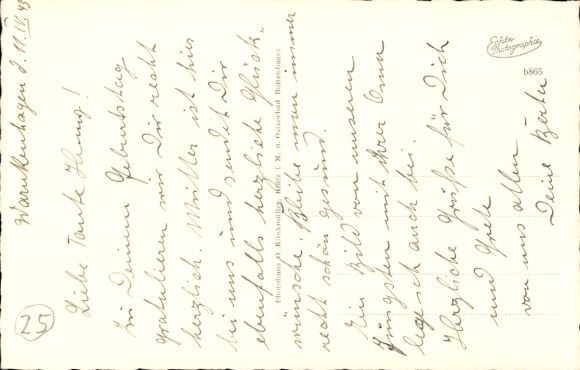 Warnkenhagen d. 11. IV. 43
Liebe Tante Hanny!
Zu Deinem Geburtstag
gratulieren wir Dir recht
herzlich. Mutter ist hier
bei uns und sendet Dir
ebenfalls herzliche Glück-
wünsche. Bleibe man immer
recht schön gesund.
Ein Bild von unseren
Jüngsten mit ihrer Oma
lege ich auch bei.
Herzliche Grüße für Dich
und Grete
von uns allen
Deine Bertha
25
Echte Photographie
b865
Photohaus O. Klinkmüller, Mölln i. M. u. Ostseebad Boltenhagen